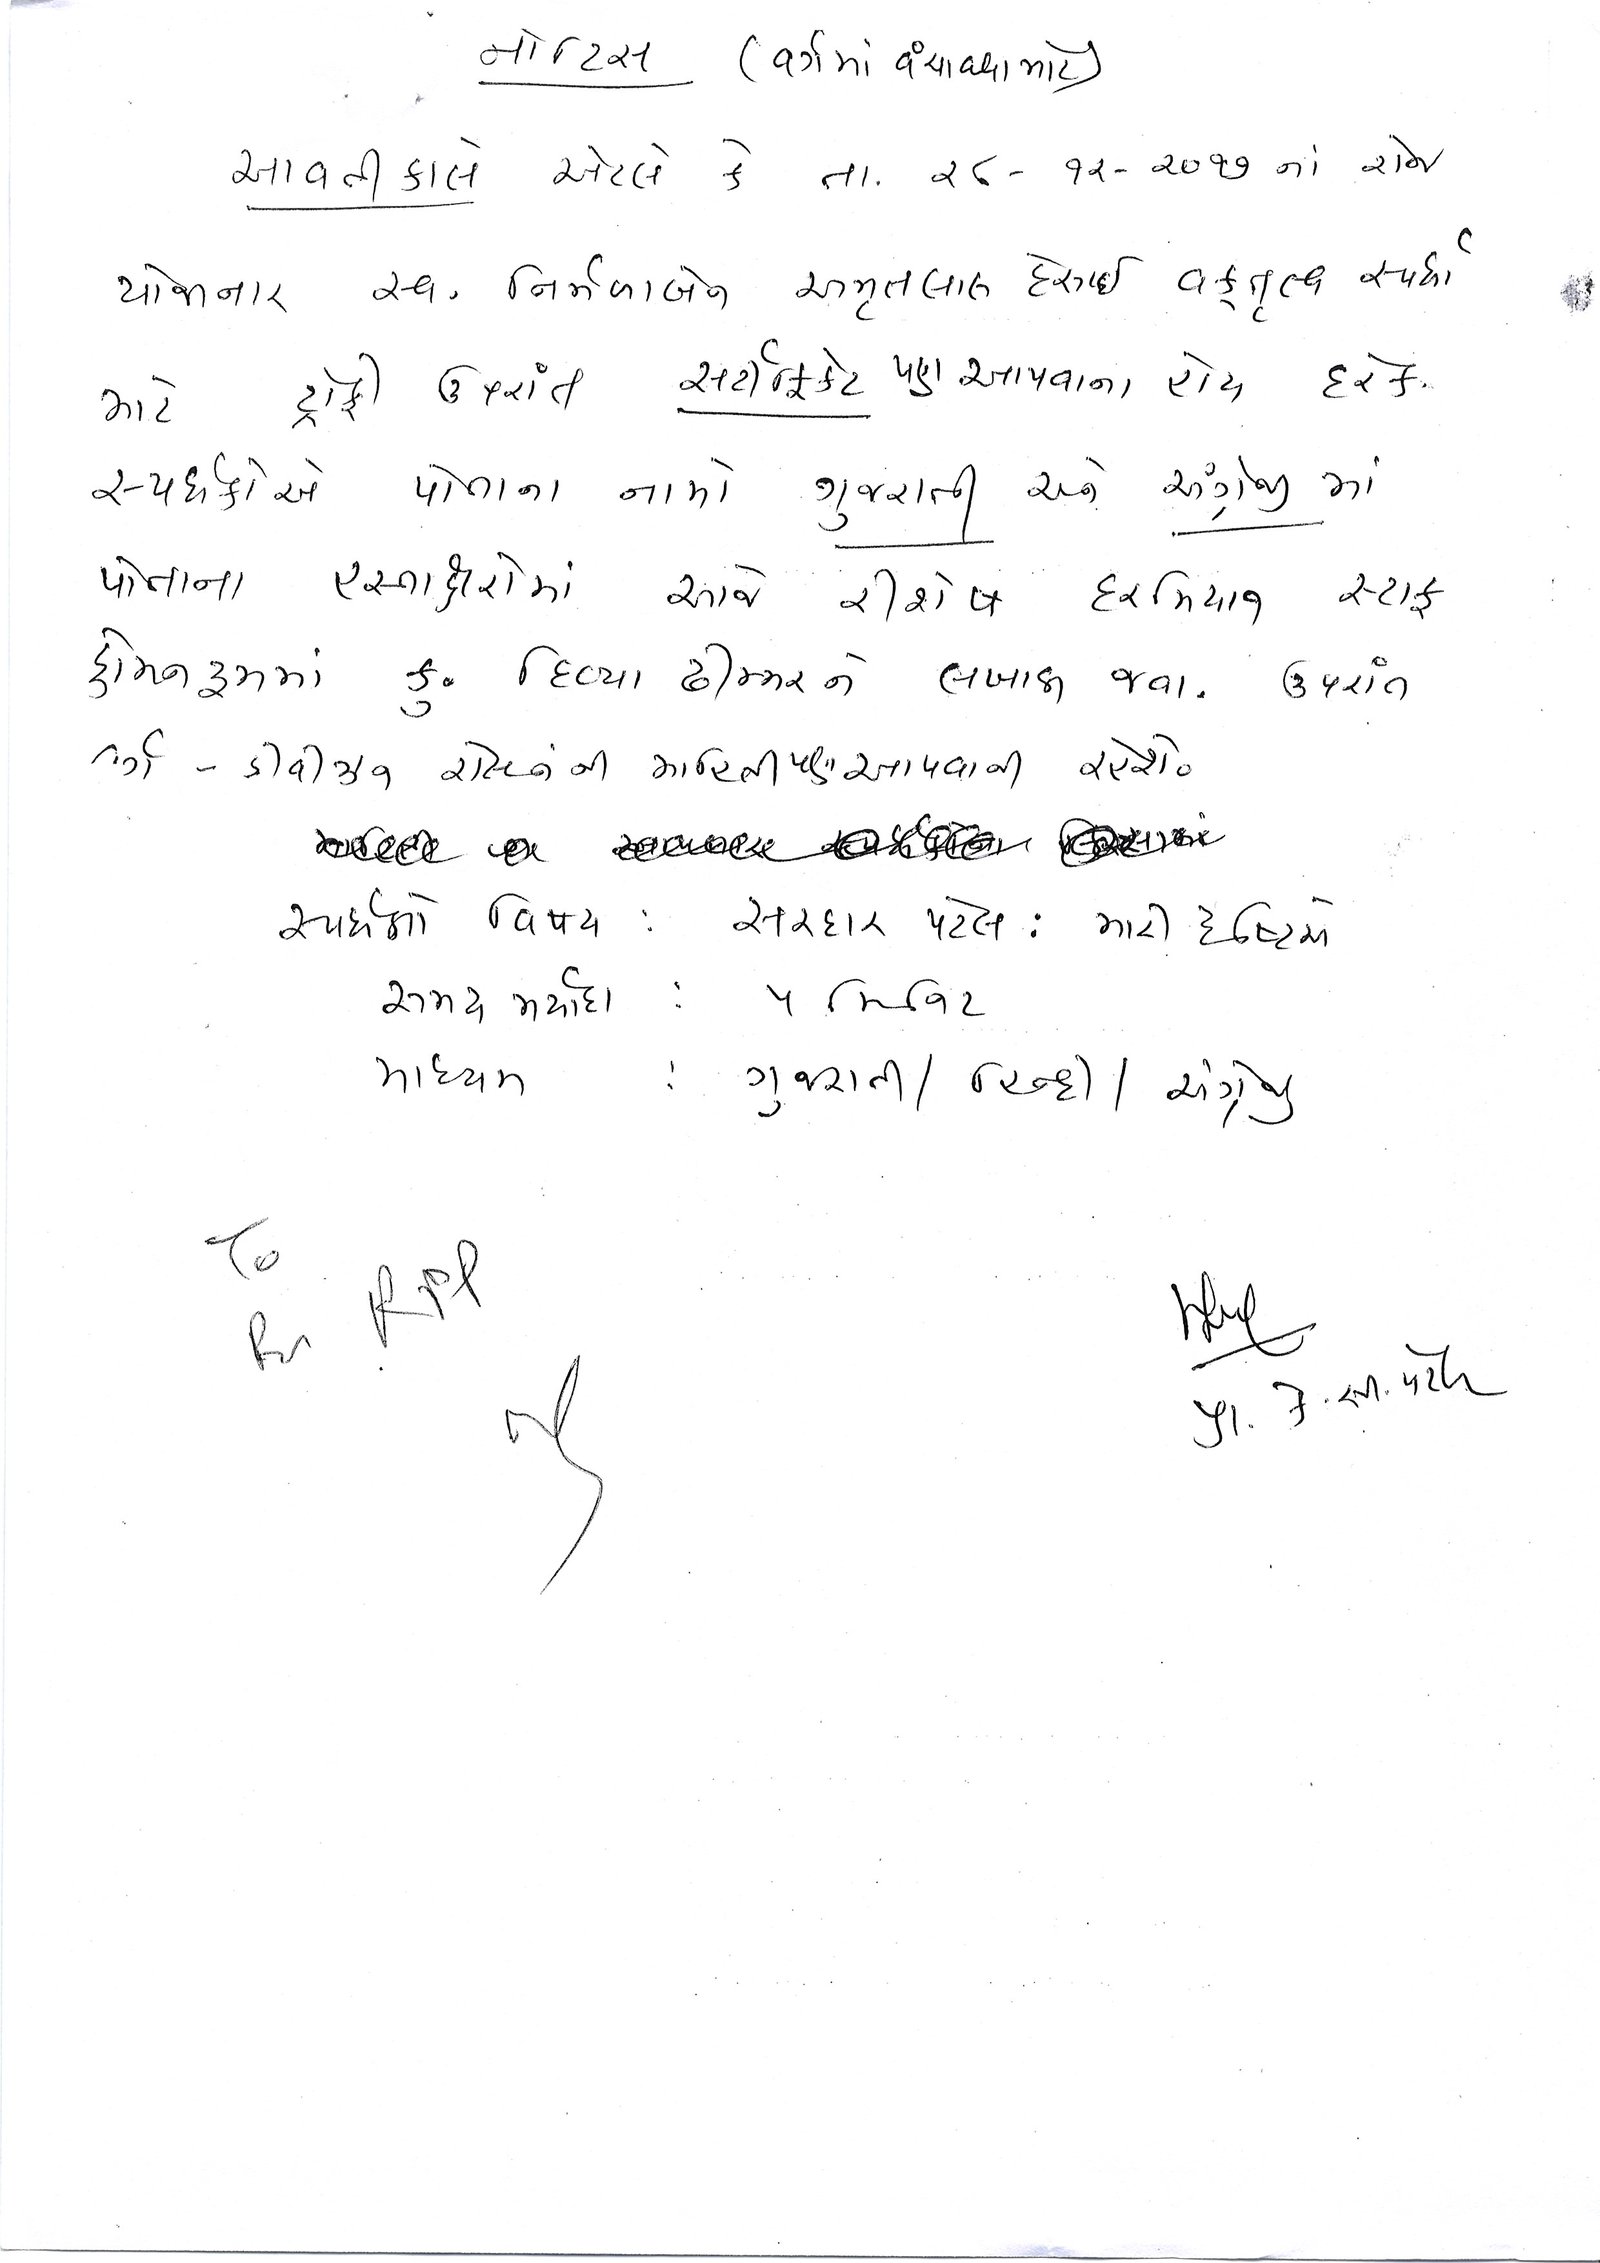 નોટિસ (વર્ગમાં વંચાવવા માટે)
આવતીકાલે એટલે કે તા. ૨૮-૧૨-૨૦૧૭ નાં રોજ
યોજાનાર સ્વ. નિર્મળાબેન અમૃતલાલ દેસાઈ વક્તૃત્વ સ્પર્ધા
માટે ટ્રોફી ઉપરાંત સર્ટીફિકેટ પણ આપવાના હોય દરેક
સ્પર્ધકોએ પોતાના નામો ગુજરાતી અને અંગ્રેજી માં
પોતાના હસ્તાક્ષરોમાં આજે રીશેષ દરમિયાન સ્ટાફ
કોમન રૂમમાં કુ. દિવ્યા ઢીમ્મરને લખાવી જવા. ઉપરાંત
વર્ગ - ડીવીઝન રોલનંની માહિતી પણ આપવાની રહેશે.
સ્પર્ધાનો વિષય : સરદાર પટેલ : મારી દૃષ્ટિએ
સમય મર્યાદા : ૫ મિનિટ
માધ્યમ : ગુજરાતી / હિન્દી / અંગ્રેજી
To
પ્રા. કે. સી. પટેલ